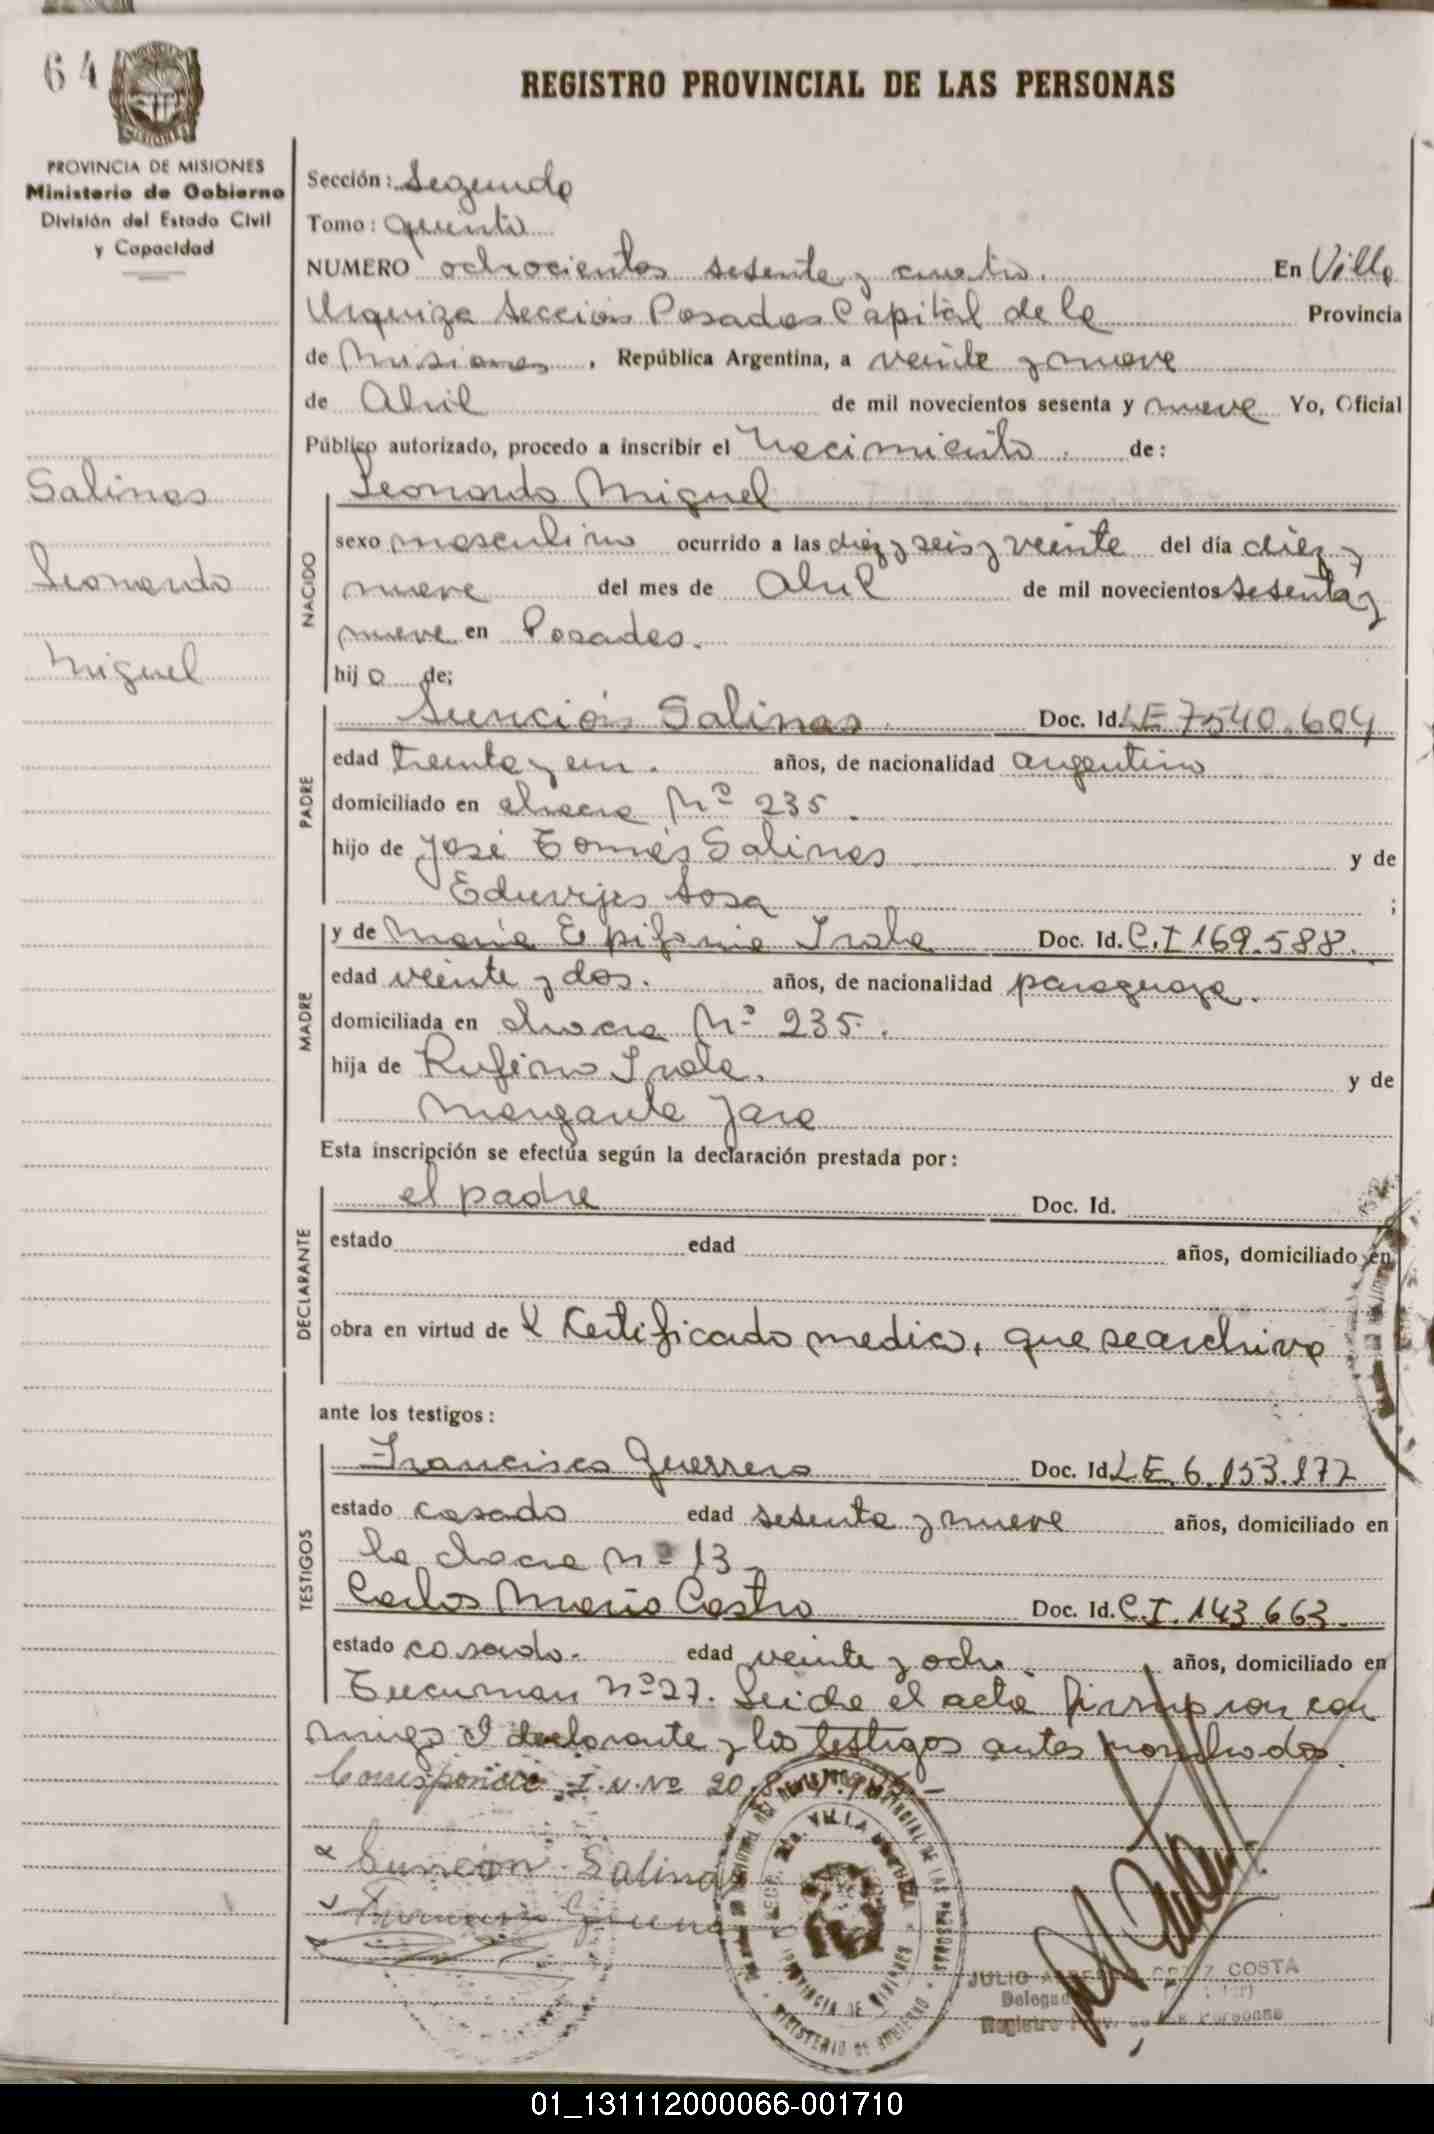 64
REGISTRO PROVINCIAL DE LAS PERSONAS
PROVINCIA DE MISIONES
Ministerio de Gobierno
División del Estado Civil
y Capacidad
Salinas
Leonardo
Miguel
Sección: Segunda
Tomo: quinto
NUMERO ochocientos sesenta y cuatro. En Villa
Urquiza Sección Posadas Capital de la Provincia
de Misiones, República Argentina, a veinte y nueve
de Abril de mil novecientos sesenta y nueve Yo, Oficial
Público autorizado, procedo a inscribir el Nacimiento. de:
Leonardo Miguel
NACIDO
sexo masculino ocurrido a las diez y seis y veinte del día diez y
nueve del mes de Abril de mil novecientos sesenta y
nueve en Posadas.
hijo de;
PADRE
Sunción Salinas Doc. Id. LE 7540.604
edad treinta y un. años, de nacionalidad argentino
domiciliado en chacra Nº 235.
hijo de José Tomás Salinas y de
Eduvijes Sosa ;
MADRE
y de María Epifania Irala Doc. Id. C.I 169.588.
edad veinte y dos. años, de nacionalidad paraguaya.
domiciliada en chacra Nº 235.
hija de Rufino Irala. y de
Margarita Jara
Esta inscripción se efectúa según la declaración prestada por:
DECLARANTE
el padre Doc. Id.
estado edad años, domiciliado en
obra en virtud de Certificado medico, que se archiva
ante los testigos:
TESTIGOS
Francisco Guerrero Doc. Id. LE. 6.153.177
estado casado edad sesenta y nueve años, domiciliado en
la chacra nº 13
Carlos María Castro Doc. Id. C.I. 143.663.
estado casado. edad veinte y ocho. años, domiciliado en
Tucuman Nº 27. Leida el acta firmaron con
migo el declarante y los testigos antes nombrados.
Corresponde I.N.Nº 20.
Sunción Salinas
VILLA URQUIZA
PROVINCIA DE MISIONES
MINISTERIO DE GOBIERNO
JULIO COSTA
Registro
01_131112000066-001710